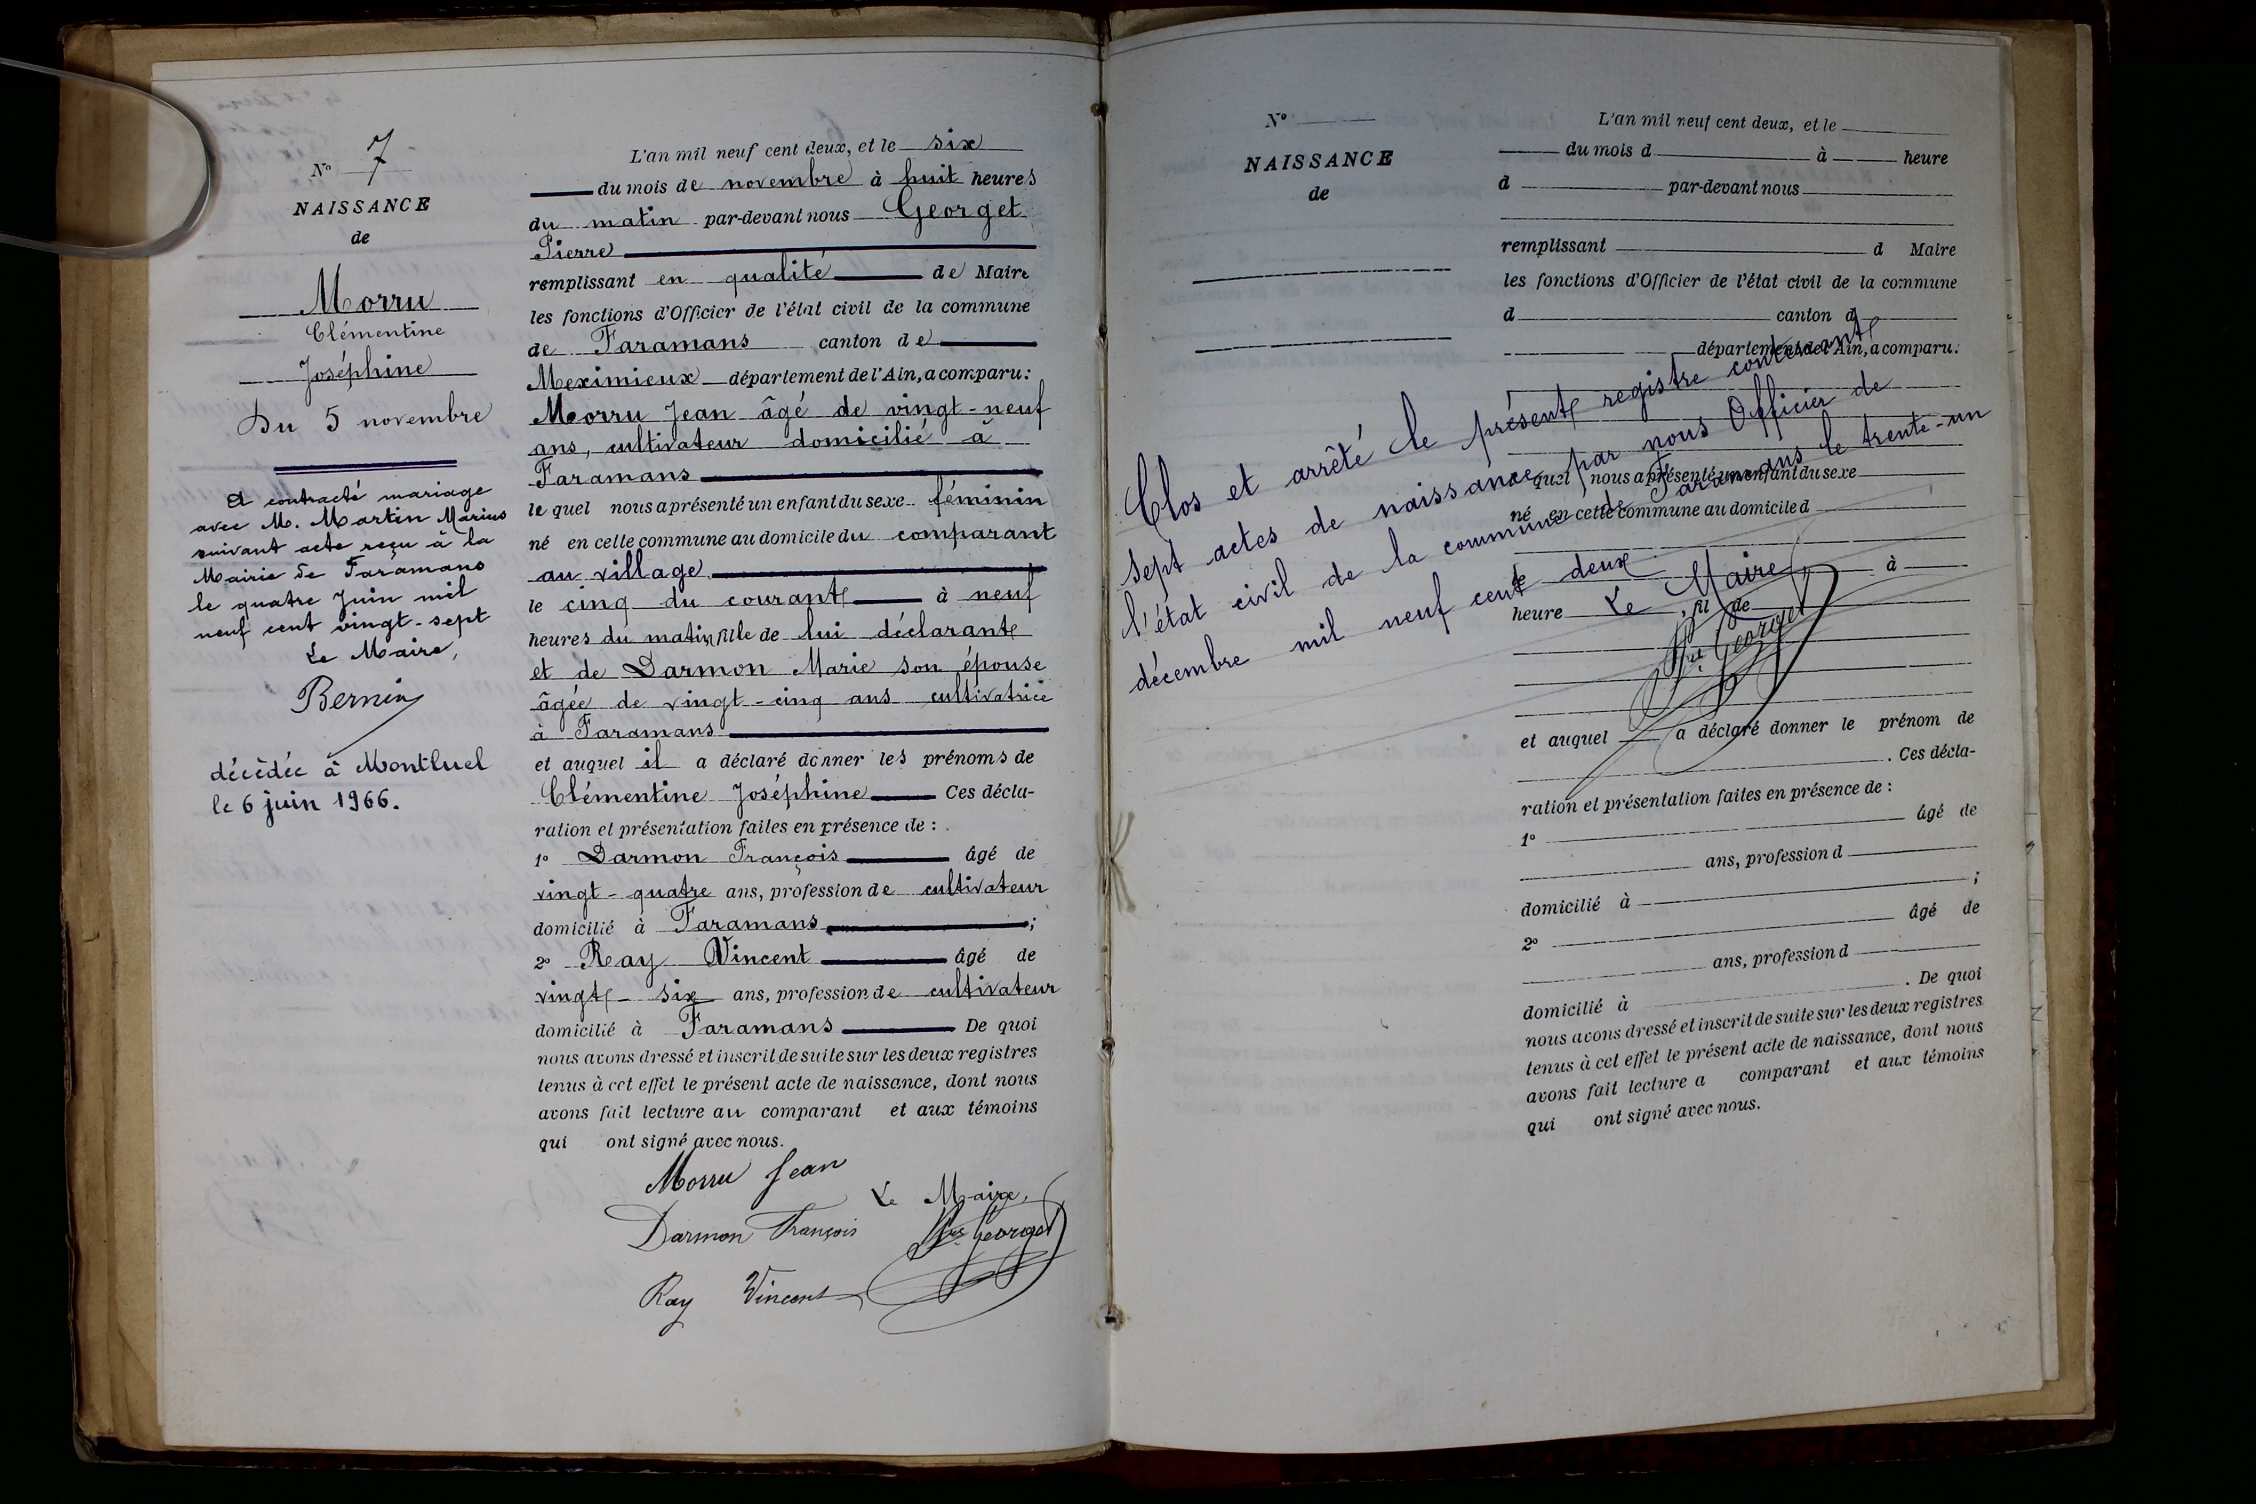 N° 7
NAISSANCE
de
Morru
Clémentine
Joséphine
Du 5 novembre
A contracté mariage
avec M. Martin Marius
suivant acte reçu à la
Mairie de Faramans
le quatre Juin mil
neuf cent vingt-sept
Le Maire,
Bernin
décédée à Montluel
le 6 juin 1966.
L'an mil neuf cent deux, et le six
du mois de novembre à huit heures
du matin par-devant nous Georget
Pierre
remplissant en qualité de Maire
les fonctions d'Officier de l'état civil de la commune
de Faramans canton de
Meximieux département de l'Ain, a comparu:
Morru Jean âgé de vingt-neuf
ans, cultivateur domicilié à
Faramans
lequel nous a présenté un enfant du sexe féminin
né en cette commune au domicile du comparant
au village
le cinq du courant à neuf
heures du matin, fille de lui déclarant
et de Darmon Marie son épouse
âgée de vingt-cinq ans cultivatrice
à Faramans
et auquel il a déclaré donner les prénoms de
Clémentine Joséphine Ces décla-
ration et présentation faites en présence de :
1° Darmon François âgé de
vingt-quatre ans, profession de cultivateur
domicilié à Faramans ;
2° Ray Vincent âgé de
vingt-six ans, profession de cultivateur
domicilié à Faramans De quoi
nous avons dressé et inscrit de suite sur les deux registres
tenus à cet effet le présent acte de naissance, dont nous
avons fait lecture au comparant et aux témoins
qui ont signé avec nous.
Morru Jean
Le Maire,
Darmon François
Georget
Ray Vincent
N°
NAISSANCE
de
L'an mil neuf cent deux, et le
du mois d à heure
d par-devant nous
remplissant d Maire
les fonctions d'Officier de l'état civil de la commune
d canton d
département de l'Ain, a comparu:
quel nous a présenté un enfant du sexe
né en cette commune au domicile d
le à
heure , fil de
et auquel a déclaré donner le prénom de
. Ces décla-
ration et présentation faites en présence de :
1° âgé de
ans, profession d
domicilié à ;
2° âgé de
ans, profession d
domicilié à . De quoi
nous avons dressé et inscrit de suite sur les deux registres
tenus à cet effet le présent acte de naissance, dont nous
avons fait lecture a comparant et aux témoins
qui ont signé avec nous.
Clos et arrêté le présent registre contenant
sept actes de naissance par nous Officier de
l'état civil de la commune de Faramans le trente-un
décembre mil neuf cent deux
Le Maire
Georget